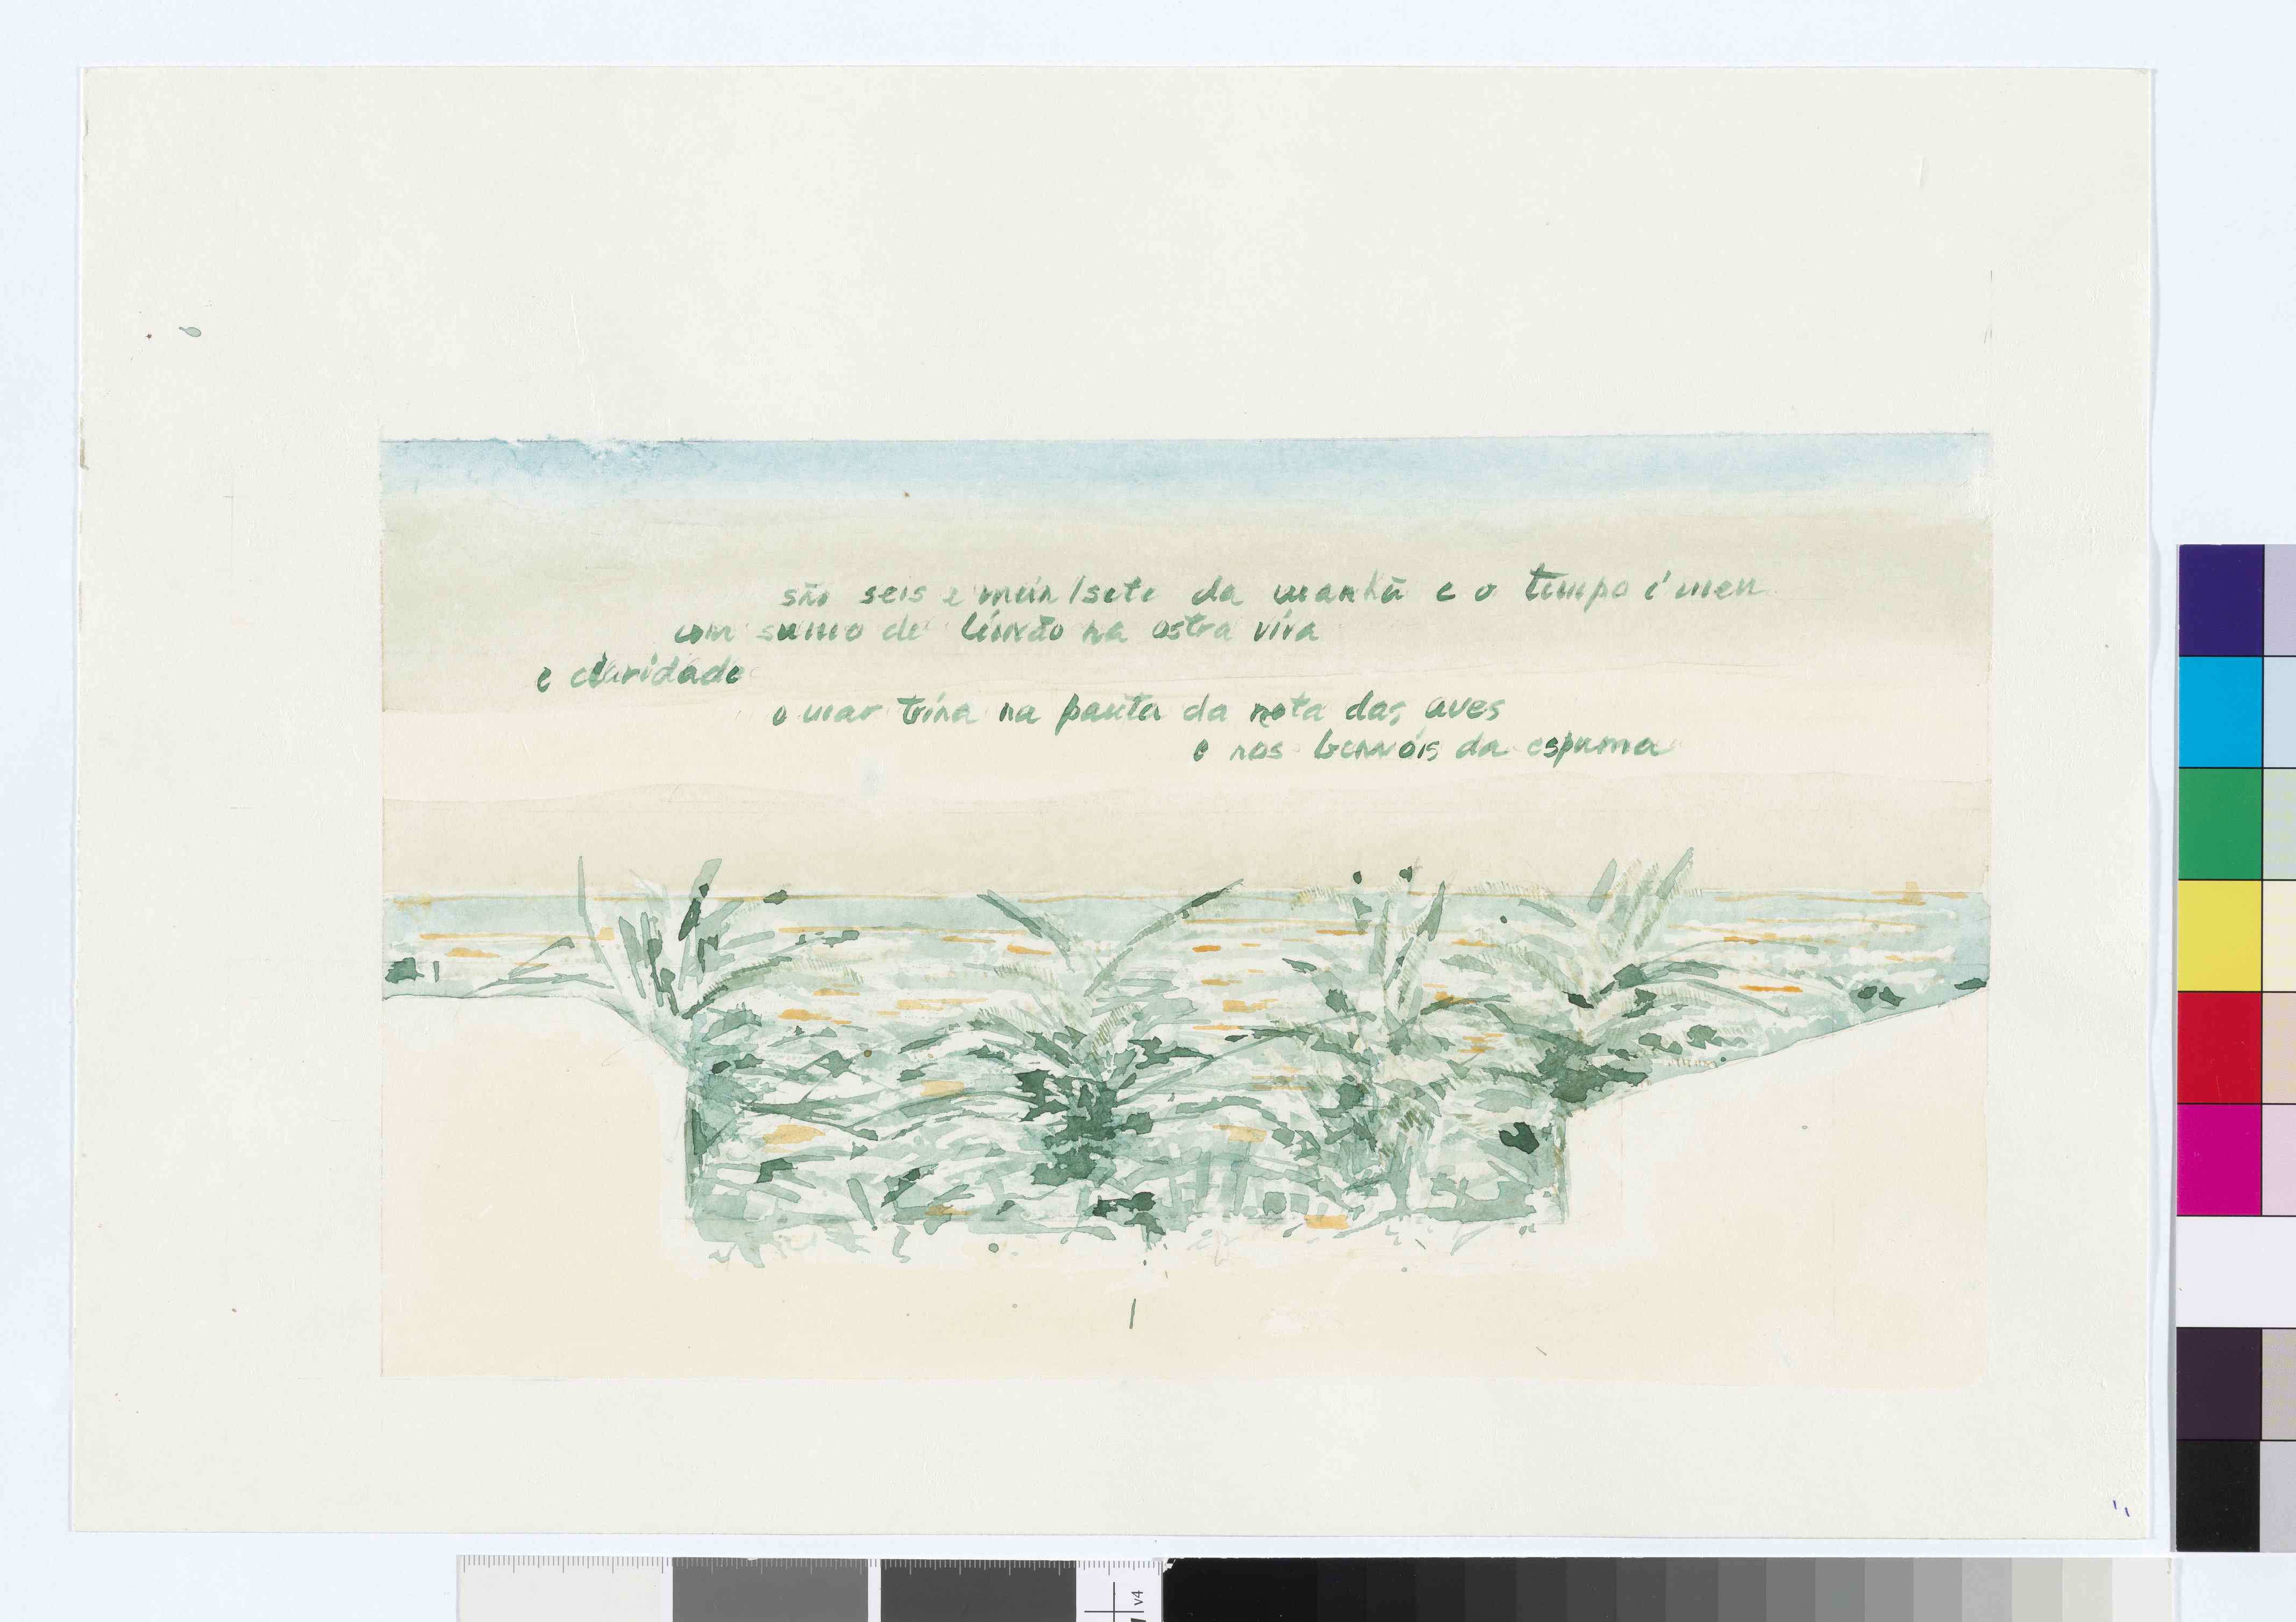 são seis e meia/sete da manhã e o tempo é meu
com sumo de limão na ostra viva
e claridade
o mar trina na pauta da nota das aves
e nos lençóis da espuma
v4